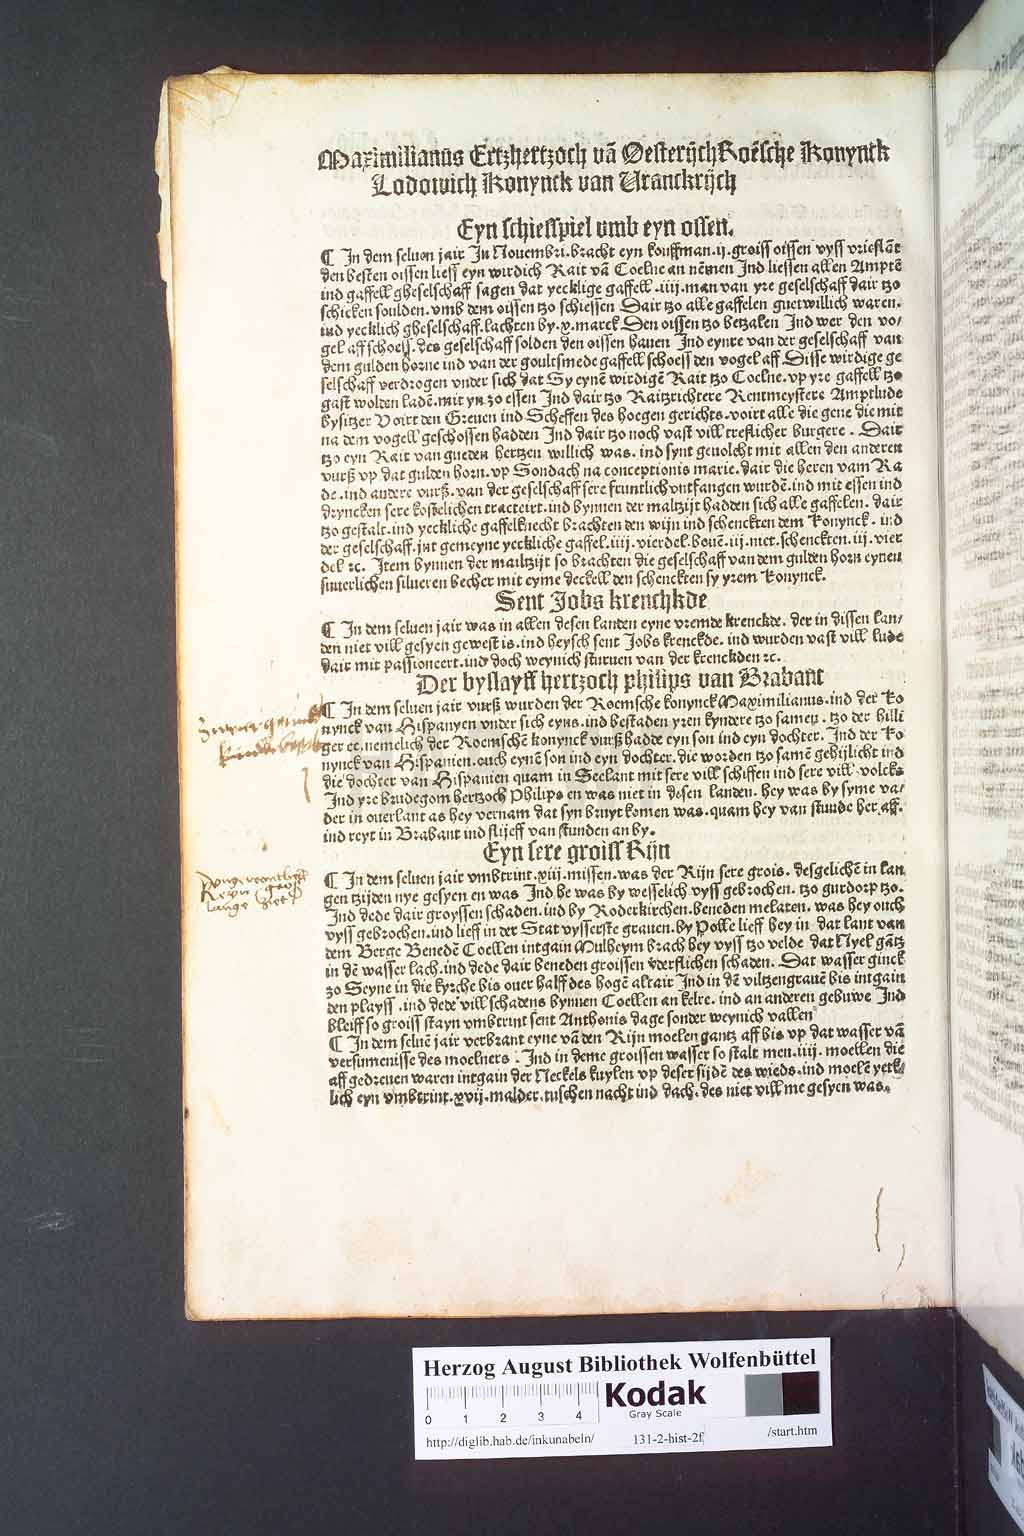 Maximilianus Ertzhertzoch vā OesterijchRoēsche Konynck
Lodowich Konynck van Vranckrijch
Eyn schiesspiel vmb eyn ossen.
¶ In dem seluen jair In Nouembri. bracht eyn kouffman .ij. groiss oissen vyss vrieslāt
den besten oissen liess eyn wirdich Rait vā Coelne an nēmen Ind liessen allen Amptē
ind gaffell gheselschaff sagen dat yecklige gaffell .iiij. man van yre geselschaff dair tzo
schicken soulden. vmb dem oissen tzo schiessen Dair tzo alle gaffelen guetwillich waren.
ind yecklich gheselschaff. lachten by .x. marck. Den oissen tzo betzalen Ind wer den vo/
gel aff schoess. des geselschaff solden den oissen hauen Ind eynre van der geselschaff van
dem gulden horne ind van der goultsmede gaffell schoess den vogel aff. Disse wirdige ge
selschaff verdrogen vnder sich dat Sy eynē wirdigē Rait tzo Coelne. vp yre gaffell tzo
gast wolden ladē. mit yn zo essen Ind dair tzo Raitzrichtere Rentmeystere Amptlude
bysitzer Voirt den Greuen ind Scheffen des hoegen gerichts. voirt alle die gene die mit
na dem vogell geschossen hadden Ind dair tzo noch vast vill treflicher burgere. Dair
tzo eyn Rait van gueden hertzen willich was. ind synt geuolcht mit allen den anderen
vurß vp dat gulden horn. vp Sondach na conceptionis marie. dair die heren vam Ra
de. ind andere vurß. van der geselschaff sere fruntlich vntfangen wurdē. ind mit essen ind
dryncken sere kostelichen tracteirt. ind bynnen der maltzijt hadden sich alle gaffelen. dair
tzo gestalt. ind yeckliche gaffelknecht brachten den wijn ind schenckten dem Konynck. ind
der geselschaff. int gemeyne yeckliche gaffel. iiij. vierdel. bouē. iij. met. schenckten. iij. vier
del ꝛc. Item bynnen der mailtzijt so brachten die geselschaff van dem gulden horn eynen
suuerlichen silueren becher mit eyme deckell den schenckten sy yrem Konynck.
Sent Jobs krenchkde
¶ In dem seluen jair was in allen desen landen eyne vremde krenckde. der in dissen lan/
den niet vill gesyen gewest is. ind heysch sent Jobs krenckde. ind wurden vast vill lude
dair mit passioneert. ind doch weynich sturuen van der krenckden ꝛc.
Der byslayff hertzoch philips van Brabant
¶ In dem seluen jair vurß wurden der Roemsche konynck Maximilianus. ind der Ko
nynck van Hispanyen vnder sich eyns. ind bestaden yren kyndere tzo samen. tzo der hilli
ger ee. nemelich der Roemschē konynck vurß hadde eyn son ind eyn dochter. Ind der Ko
nynck van Hispanien. ouch eynē son ind eyn dochter. die worden tzo samē gehijlicht ind
die dochter van Hispanien quam in Seelant mit sere vill schiffen ind sere vill volcks
Ind yre brudegom hertzoch Philips en was niet in desen landen. hey was by syme va/
der in ouerlant as hey vernam dat syn bruyt komen was. quam hey van stunde her aff.
ind reyt in Brabant ind slijeff van stunden an by.
Eyn sere groiss Rijn
lange zeet
¶ In dem seluen jair vmbtrint. xiij. missen. was der Rijn sere grois. desgelichē in lan
gen tzijden nye gesyen en was Ind he was by wesselich vyss gebrochen. tzo gurdorp tzo.
Ind dede dair groyssen schaden. ind by Roderkirchen. beneden melaten. was hey ouch
vyss gebrochen. ind lieff in der Stat vysserste grauen. by Polle lieff hey in dat lant van
dem Berge Benedē Coellen intgain Mulheym brach hey vyss tzo velde dat Nyel gātz
in dē wasser lach. ind dede dair beneden groissen verderflichen schaden. Dat wasser ginck
zo Seyne in die kyrche bis ouer halff des hogē altair Ind in dē viltzengrauē bis intgain
den playss. ind dede vill schadens bynnen Coellen an kelre. ind an anderen gebuwe Ind
bleiff so groiss stayn vmbtrint sent Anthonis dage sonder weynich vallen
¶ In dem seluē jair verbrant eyne vā den Rijn moelen gantz aff bis vp dat wasser vā
versumenisse des moelners. Ind in deme groissen wasser so stalt men. iiij. moellen die
aff gedreuen waren intgain der Neckels kuylen vp deser sijdē des wieds. ind moelē yeck
lich eyn vmbtrint. xvij. malder. tuschen nacht ind dach. des niet vill me gesyen was.
Herzog August Bibliothek Wolfenbüttel
Kodak
Gray Scale
0 1 2 3 4
http://diglib.hab.de/inkunabeln/ 131-2-hist-2f /start.htm